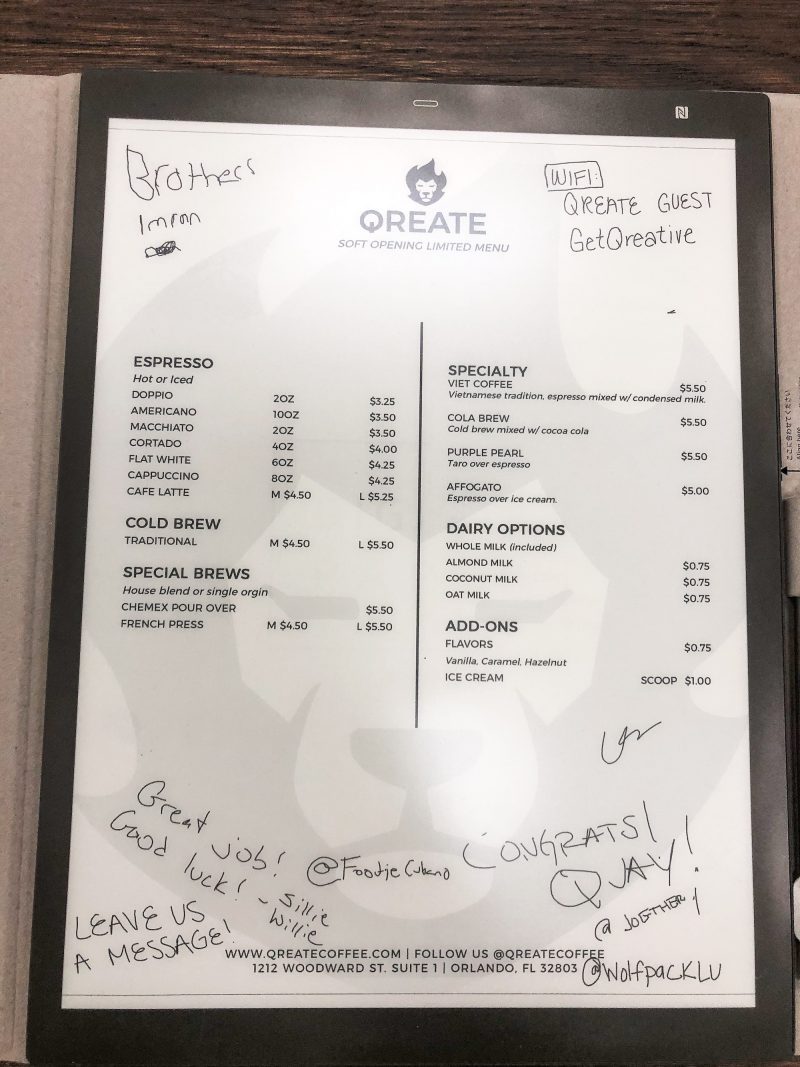 Brothers
WIFI:
QREATE GUEST
GetQreative
QREATE
SOFT OPENING LIMITED MENU
ESPRESSO
Hot or Iced
DOPPIO 2OZ $3.25
AMERICANO 10OZ $3.50
MACCHIATO 2OZ $3.50
CORTADO 4OZ $4.00
FLAT WHITE 6OZ $4.25
CAPPUCCINO 8OZ $4.25
CAFE LATTE M $4.50 L $5.25
COLD BREW
TRADITIONAL M $4.50 L $5.50
SPECIAL BREWS
House blend or single orgin
CHEMEX POUR OVER $5.50
FRENCH PRESS M $4.50 L $5.50
SPECIALTY
VIET COFFEE $5.50
Vietnamese tradition, espresso mixed w/ condensed milk.
COLA BREW $5.50
Cold brew mixed w/ cocoa cola
PURPLE PEARL $5.50
Taro over espresso
AFFOGATO $5.00
Espresso over ice cream.
DAIRY OPTIONS
WHOLE MILK (included)
ALMOND MILK $0.75
COCONUT MILK $0.75
OAT MILK $0.75
ADD-ONS
FLAVORS $0.75
Vanilla, Caramel, Hazelnut
ICE CREAM SCOOP $1.00
Great Job!
Good luck! - Sillie
Willie
@FoodieCubano
CONGRATS!
QUAY!
@JOGTHER
LEAVE US
A MESSAGE!
WWW.QREATECOFFEE.COM | FOLLOW US @QREATECOFFEE
1212 WOODWARD ST. SUITE 1 | ORLANDO, FL 32803
@WolfpackLU
ここに合わせてください